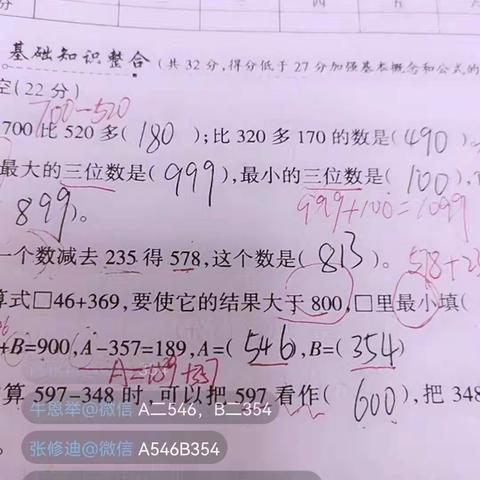 分 四
基础知识整合(共32分,得分低于27分加强基本概念和公式的
空(22分)
700-520
700比520多(180);比320多170的数是(490)
最大的三位数是(999),最小的三位数是(100),
999+100=1099
899)。
一个数减去235得578,这个数是(813)。578+23
算式□46+369,要使它的结果大于800,□里最小填(
+B=900,A-357=189,A=(546),B=(354)
A=189+357
算597-348时,可以把597看作(600),把348
牛恩举@微信 A二546，B二354
张修迪@微信 A546B354